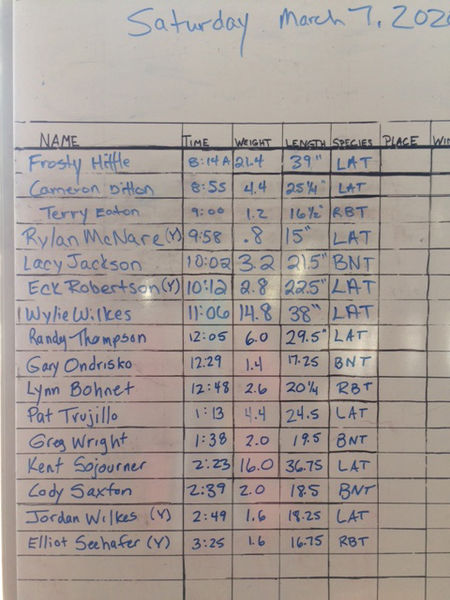 Saturday March 7, 202
NAME TIME WEIGHT LENGTH SPECIES PLACE WIN
Frosty Hittle 8:14A 21.4 39" LAT
Cameron Ditton 8:55 4.4 25¼" LAT
Terry Eaton 9:00 1.2 16½" RBT
Rylan McNare (Y) 9:58 .8 15" LAT
Lacy Jackson 10:02 3.2 21.5" BNT
Eck Robertson (Y) 10:12 2.8 22.5" LAT
Wylie Wilkes 11:06 14.8 38" LAT
Randy Thompson 12:05 6.0 29.5" LAT
Gary Ondrisko 12:29 1.4 17.25 BNT
Lynn Bohnet 12:48 2.6 20¼ RBT
Pat Trujillo 1:13 4.4 24.5 LAT
Greg Wright 1:38 2.0 19.5 BNT
Kent Sojourner 2:23 16.0 36.75 LAT
Cody Saxton 2:39 2.0 18.5 BNT
Jordan Wilkes (Y) 2:49 1.6 18.25 LAT
Elliot Seehafer (Y) 3:25 1.6 16.75 RBT